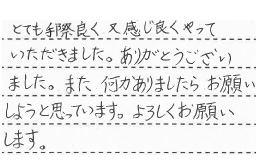 とても手際良く又感じ良くやって
いただきました。ありがとうござい
ました。また、何かありましたらお願い
しようと思っています。よろしくお願い
します。